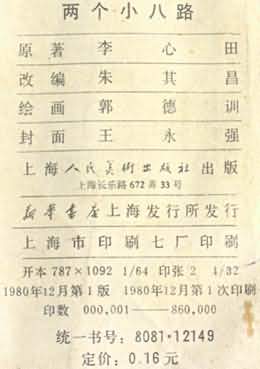 两个小八路
原著 李心田
改编 朱其昌
绘画 郭德训
封面 王永强
上海人民美术出版社出版
上海长乐路672弄33号
新华书店上海发行所发行
上海市印刷七厂印刷
开本 787×1092 1/64 印张 2 1/32
1980年12月第1版 1980年12月第1次印刷
印数 000,001——860,000
统一书号：8081·12149
定价：0.16元